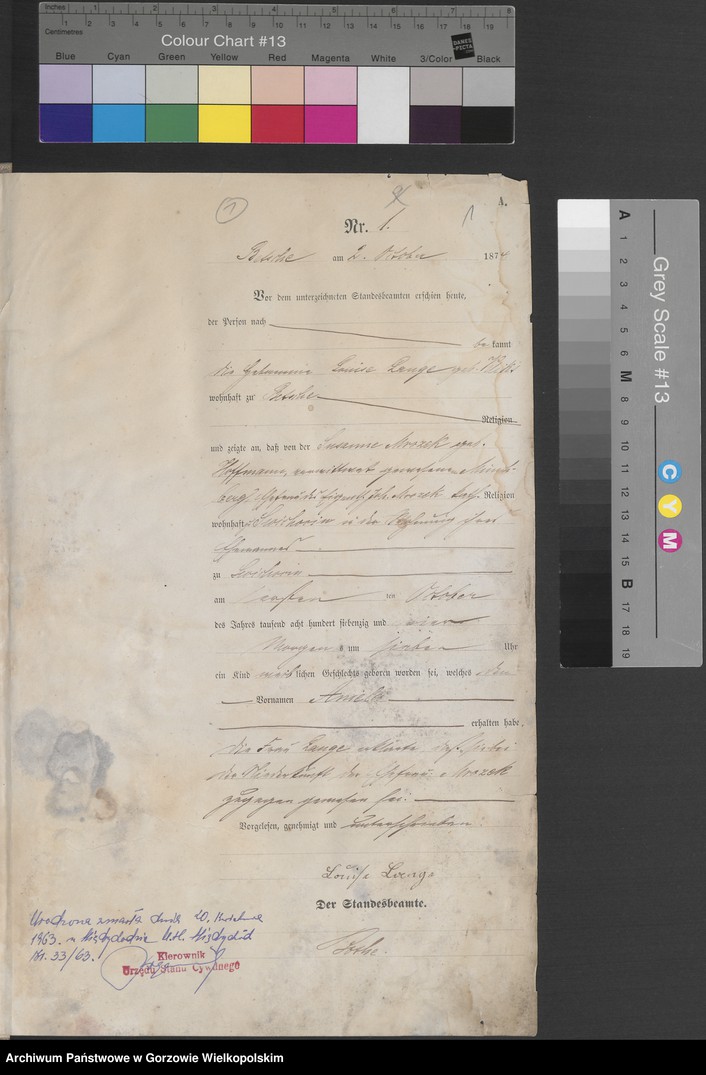 Inches 1 2 3 4 5 6 7 8
Centimetres 1 2 3 4 5 6 7 8 9 10 11 12 13 14 15 16 17 18 19
Colour Chart #13
DANES-PICTA.COM
Blue Cyan Green Yellow Red Magenta White 3/Color Black
1
A.
Nr. 1.
Betsche am 2. October 1874
Vor dem unterzeichneten Standesbeamten erschien heute,
der Person nach
bekannt
die Hebamme Louise Lange geb.
wohnhaft zu Betsche
Religion
und zeigte an, daß von der Susanne Mrozek geb.
Hoffmann,
Mrozek kath. Religion
wohnhaft in der Wohnung ihres
Ehemannes
zu
am ersten ten October
des Jahres tausend acht hundert siebenzig und vier
Morgens um sieben Uhr
ein Kind weiblichen Geschlechts geboren worden sei, welches den
Vornamen
erhalten habe.
Die Frau Lange erklärte, daß sie bei
der Niederkunft der Ehefrau Mrozek
zugegen gewesen sei.
Vorgelesen, genehmigt und unterschrieben
Louise Lange
Der Standesbeamte.
Urodzona zmarła dnia 20. kwietnia
1963. w Międzychodzie USC Międzychód
Nr. 33/63.
Kierownik
Urzędu Stanu Cywilnego
Grey Scale #13
A 1 2 3 4 5 6 M 8 9 10 11 12 13 14 15 B 17 18 19
C
Y
M
Archiwum Państwowe w Gorzowie Wielkopolskim